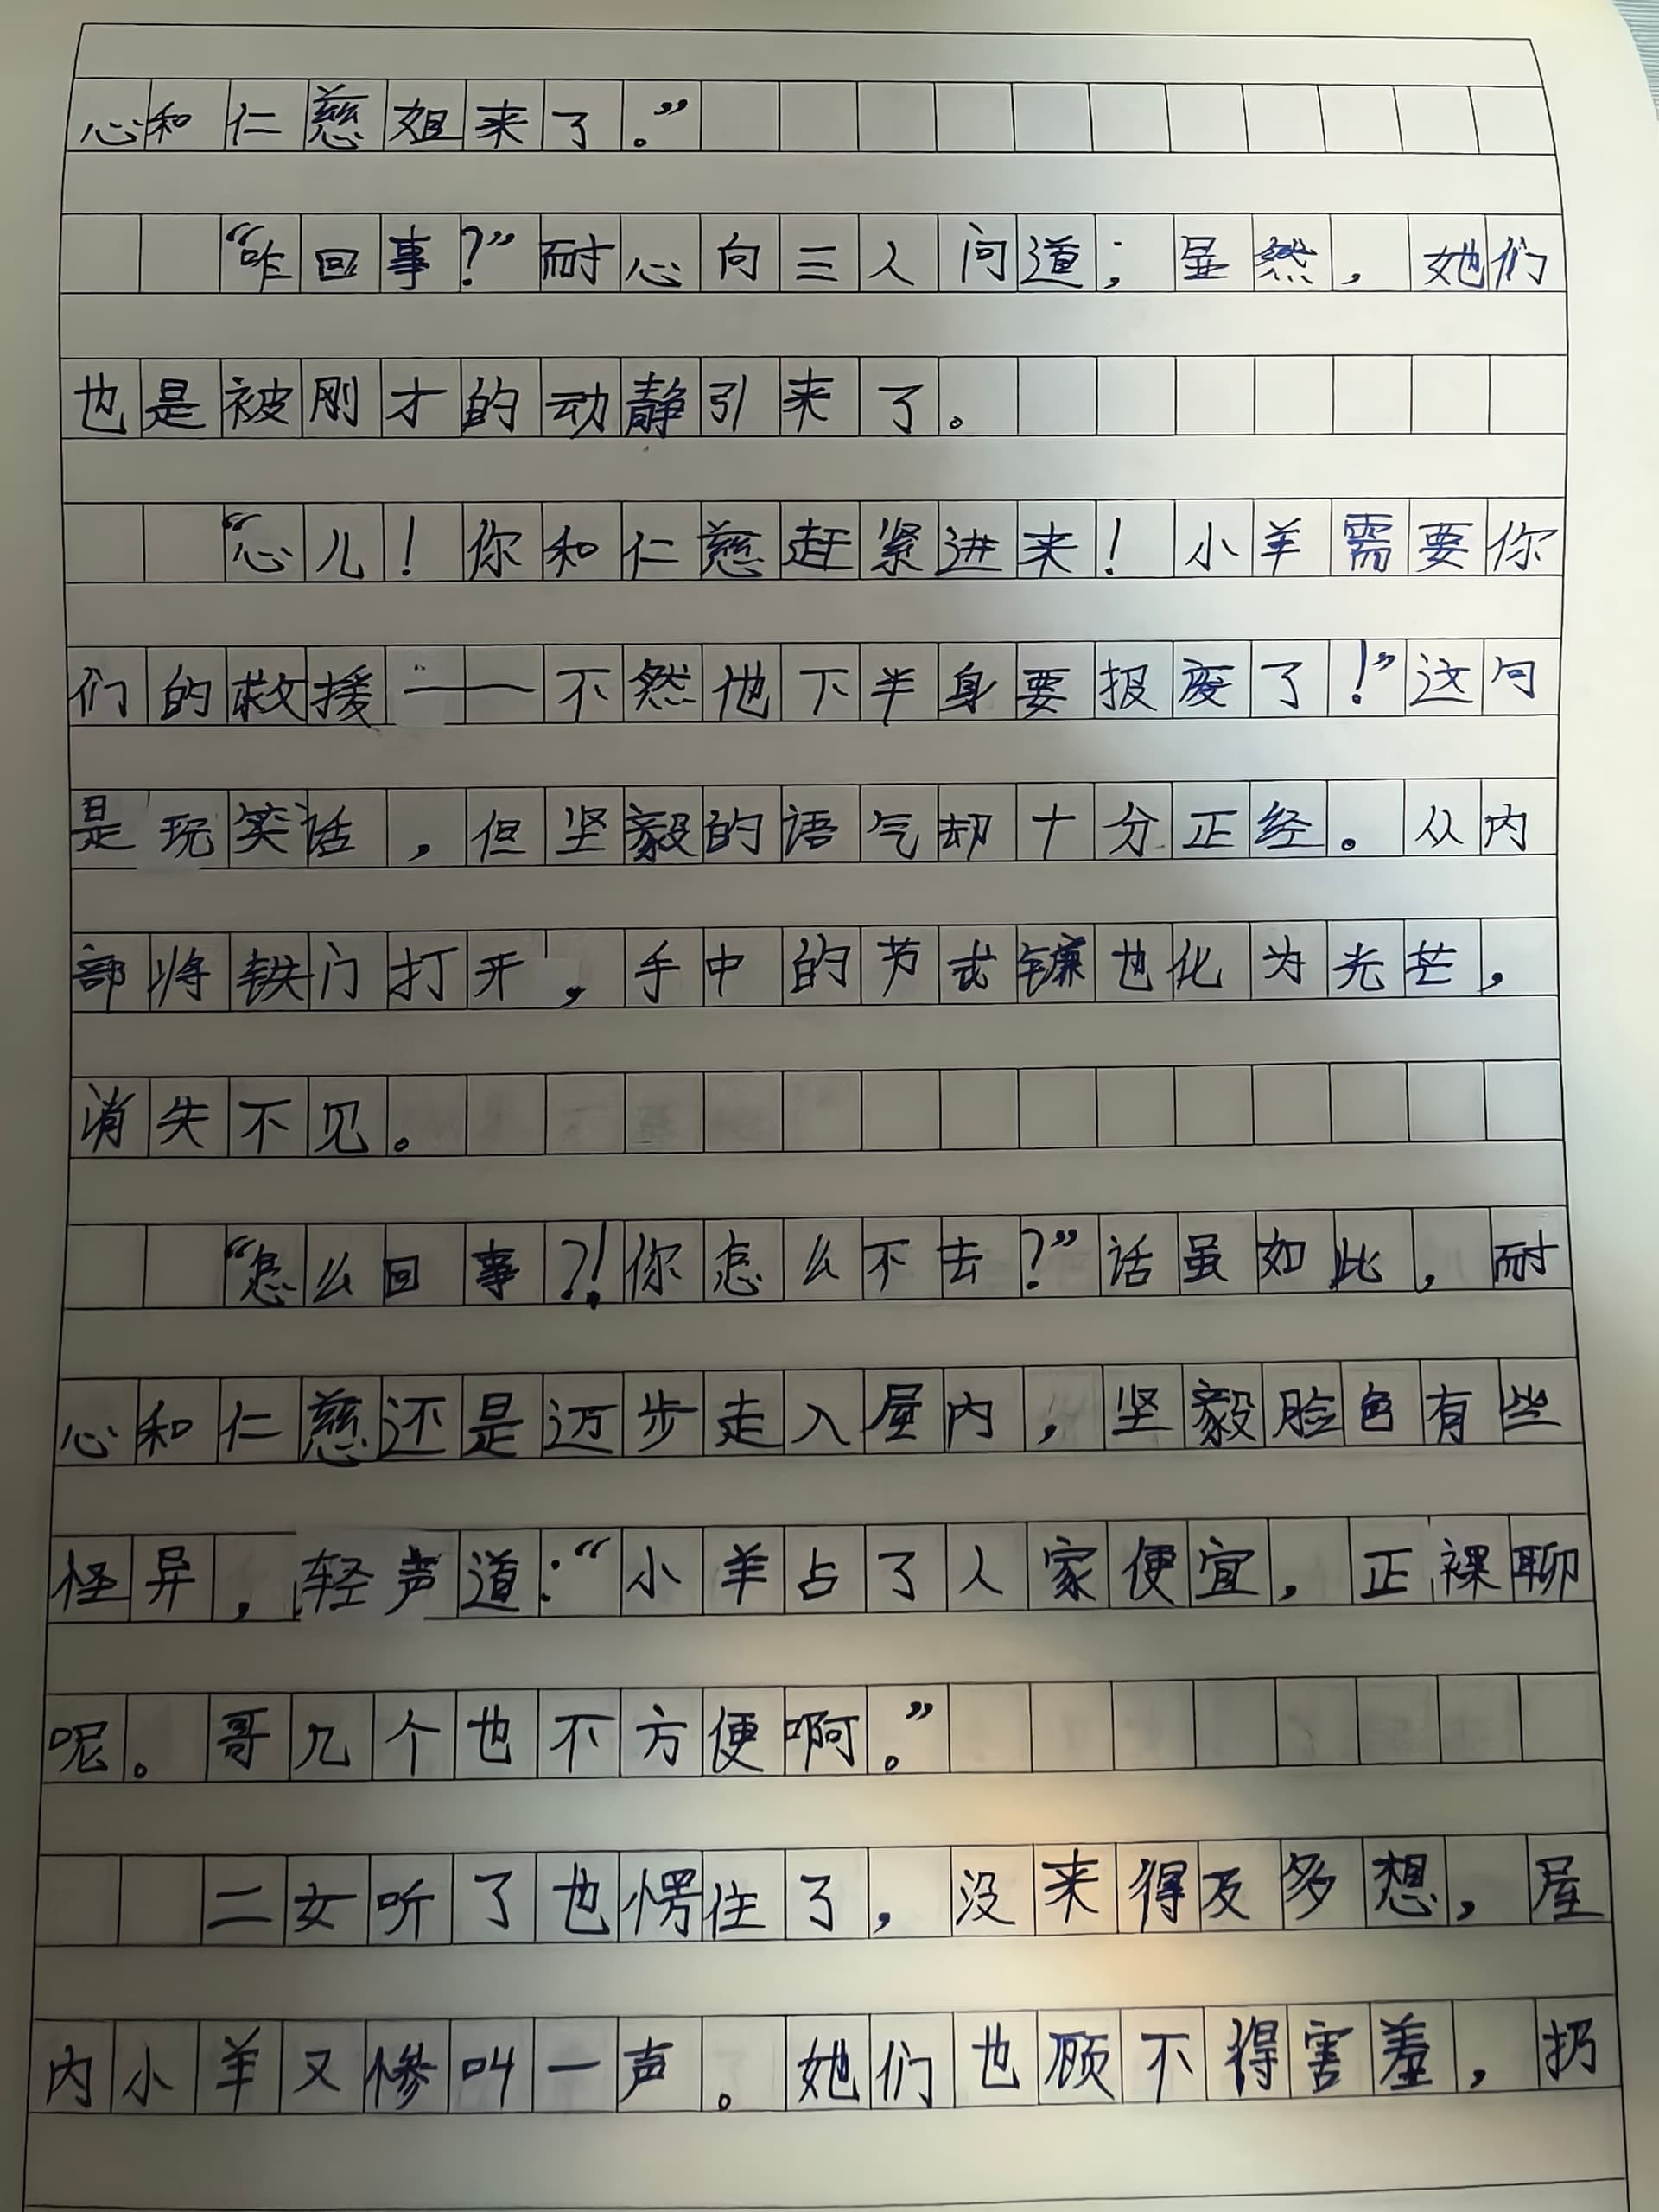 心和仁慈姐来了。”
“咋回事?”耐心向三人问道；显然，她们
也是被刚才的动静引来了。
“心儿！你和仁慈赶紧进来！小羊需要你
们的救援——不然他下半身要报废了！”这句
是玩笑话，但坚毅的语气却十分正经。从内
部将铁门打开，手中的节式镰也化为光芒，
消失不见。
“怎么回事?!你怎么不去?”话虽如此，耐
心和仁慈还是迈步走入屋内，坚毅脸色有些
怪异，轻声道：“小羊占了人家便宜，正裸聊
呢。哥几个也不方便啊。”
二女听了也愣住了，没来得及多想，屋
内小羊又惨叫一声。她们也顾不得害羞，扔